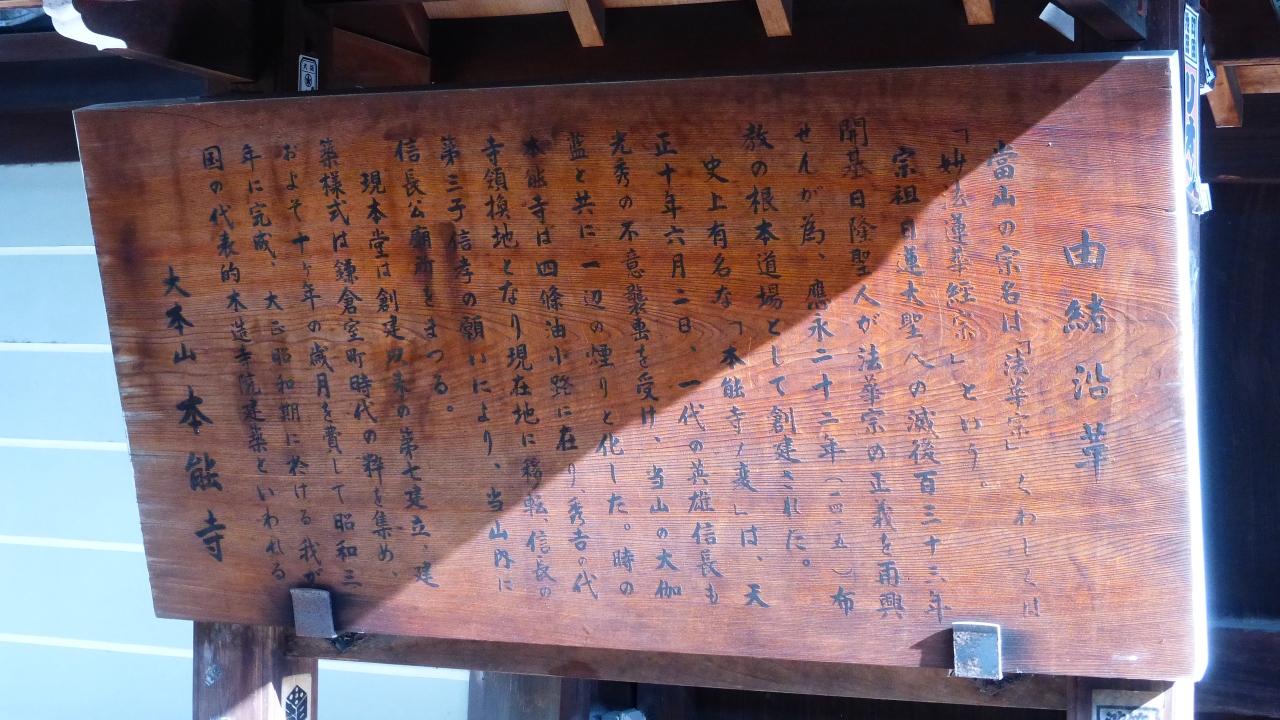 由緒沿革
當山の宗名は「法華宗」くわしくは
「妙法蓮華経宗」という。
宗祖日蓮大聖人の滅後百三十三年
開基日隆聖人が法華宗の正義を再興
せんが為、應永二十二年(一四一五)布
教の根本道場として創建された。
史上有名な「本能寺ノ変」は、天
正十年六月二日、一代の英雄信長も
光秀の不意襲撃を受け、当山の大伽
藍と共に一辺の煙りと化した。時の
本能寺は四條油小路に在り、秀吉の代
寺領換地となり現在地に移転、信長の
第三子信孝の願いにより、当山内に
信長公廟所をまつる。
現本堂は創建以来の第七建立、建
築様式は鎌倉室町時代の粋を集め、
およそ十ヶ年の歳月を費して昭和三
年に完成、大正昭和期に於ける我が
国の代表的木造寺院建築といわれる
大本山 本能寺